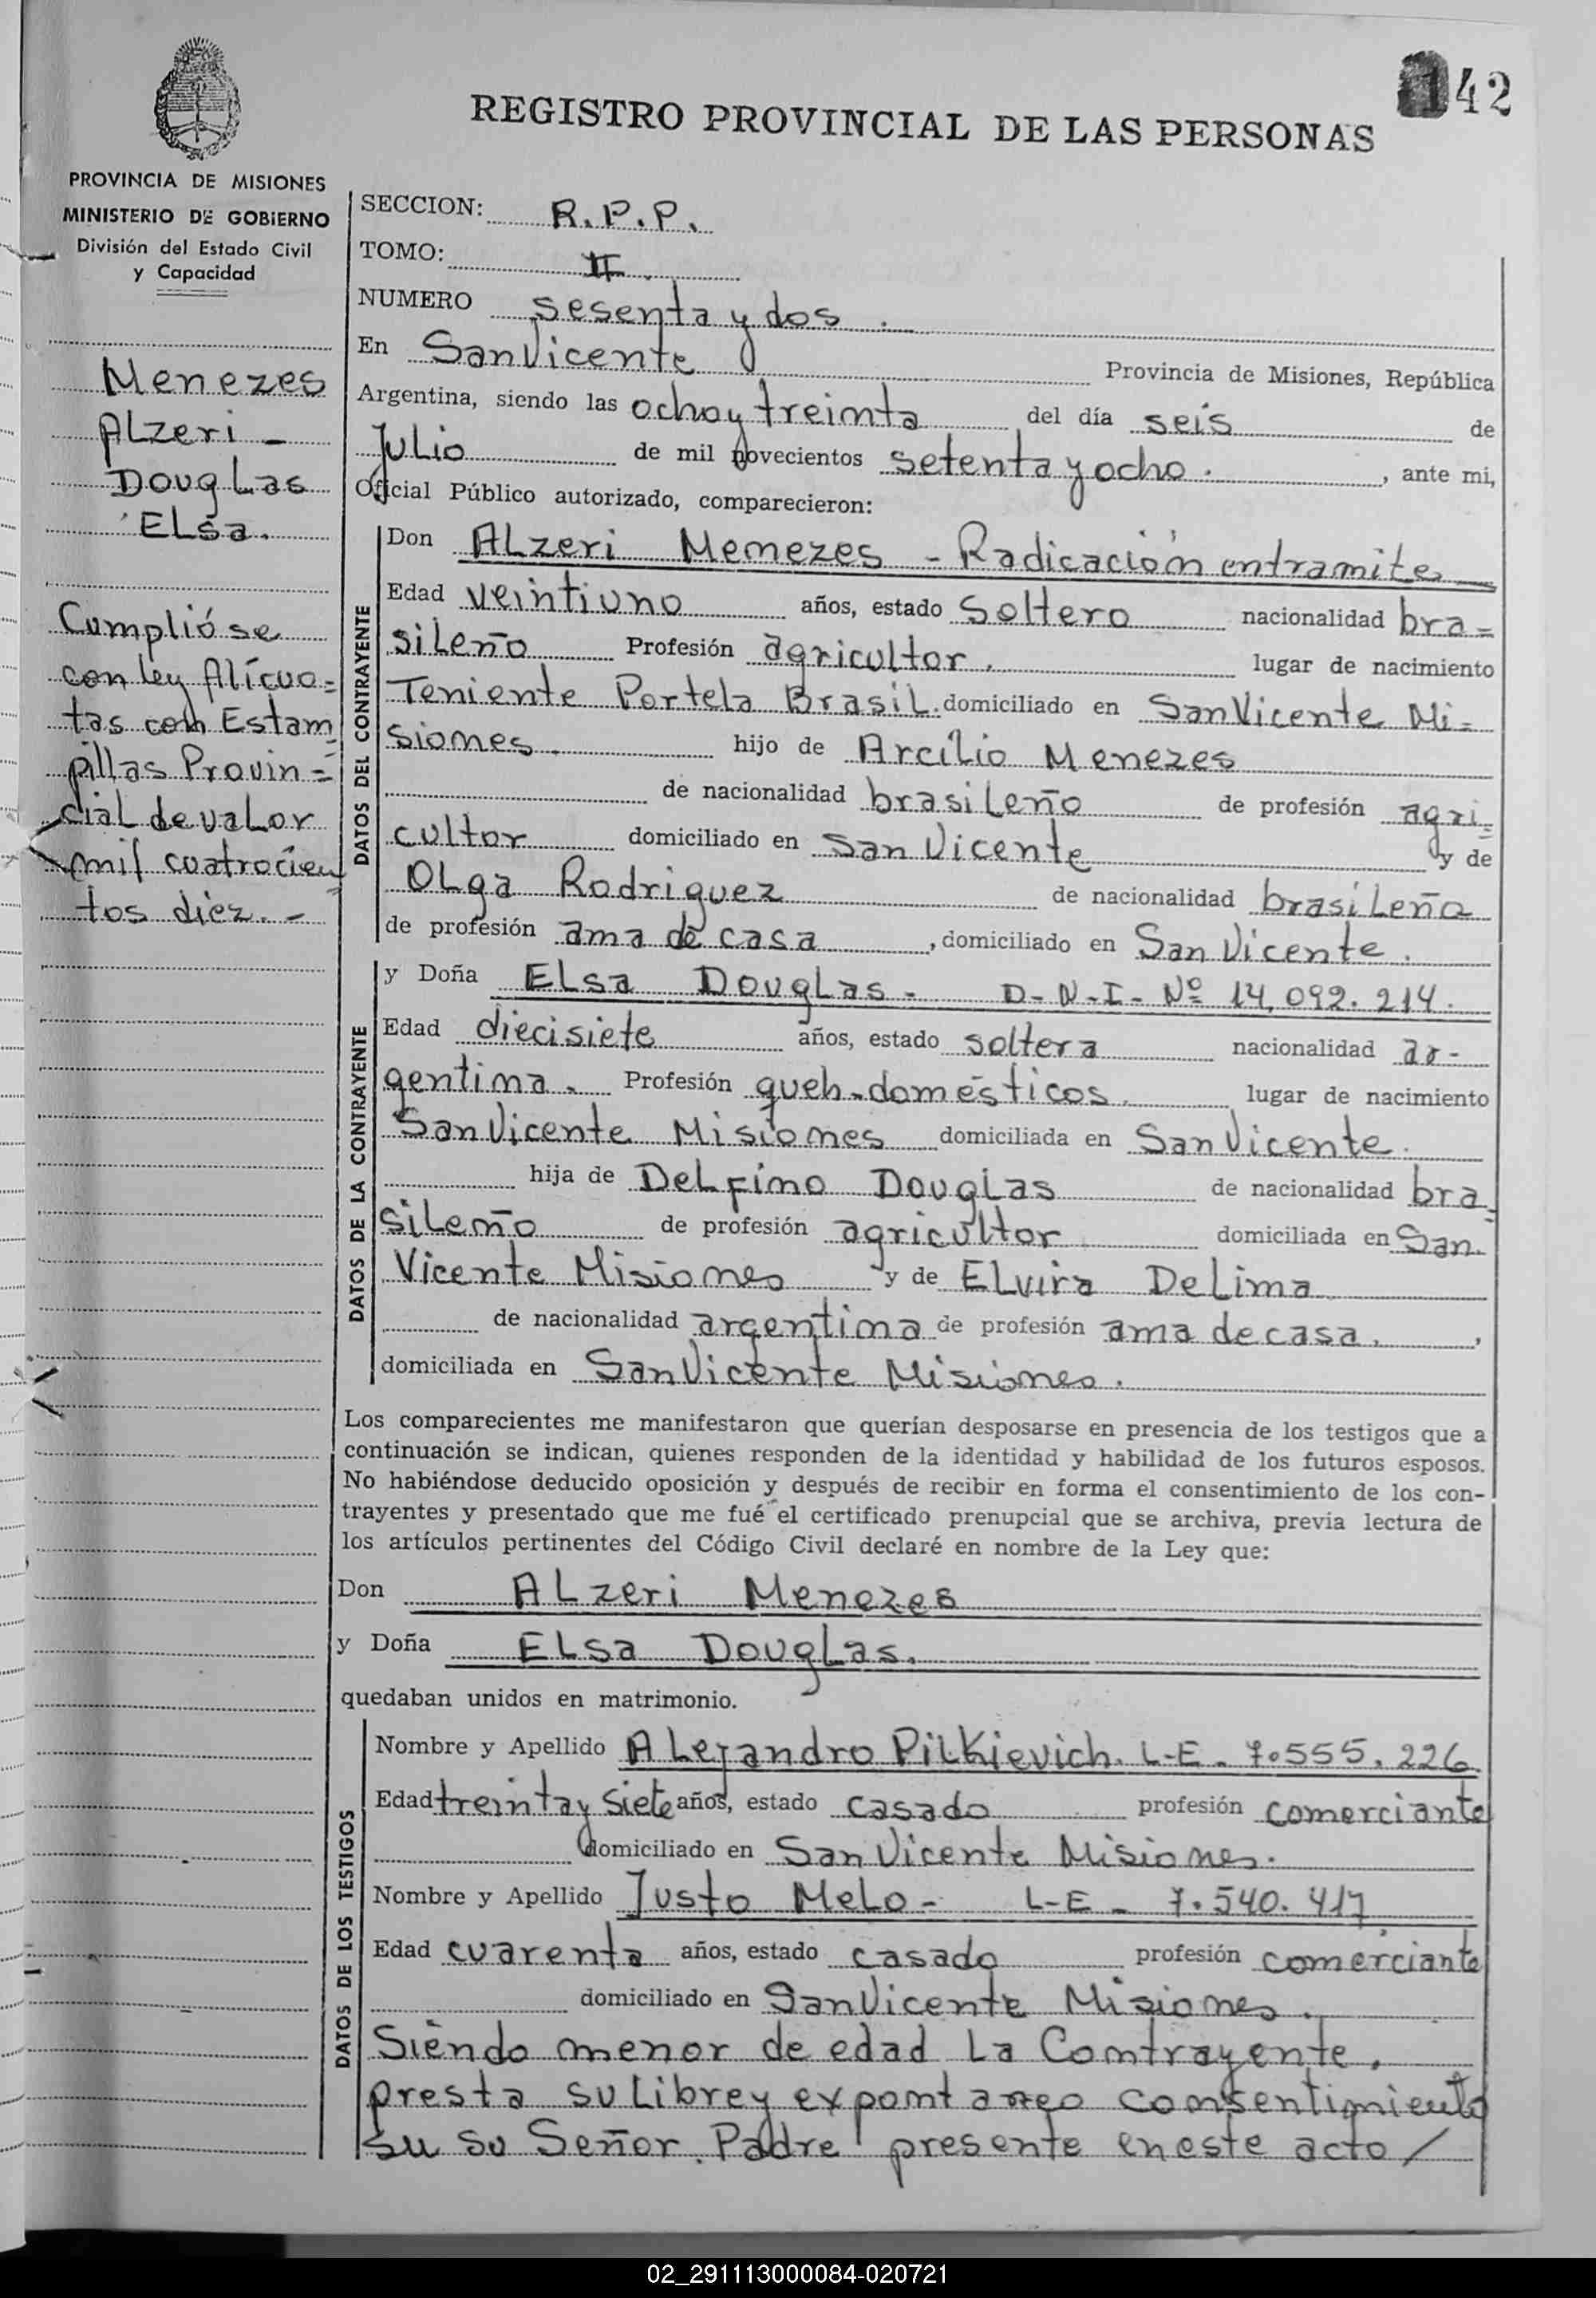 142
REGISTRO PROVINCIAL DE LAS PERSONAS
PROVINCIA DE MISIONES
MINISTERIO DE GOBIERNO
División del Estado Civil
y Capacidad
Menezes
Alzeri -
Douglas
Elsa.
Cumplió se
con ley Alícuo=
tas con Estam
pillas Provin=
cial de valor
mil cuatrocien
tos diez. -
SECCION: R.P.P.
TOMO: II
NUMERO sesenta y dos.
En San Vicente Provincia de Misiones, República
Argentina, siendo las ocho y treinta del día seis de
Julio de mil novecientos setenta y ocho. , ante mi,
Oficial Público autorizado, comparecieron:
DATOS DEL CONTRAYENTE
Don Alzeri Menezes - Radicación en tramite
Edad veintiuno años, estado Soltero nacionalidad bra=
sileño Profesión agricultor. lugar de nacimiento
Teniente Portela Brasil. domiciliado en San Vicente Mi=
siones. hijo de Arcílio Menezes
de nacionalidad brasileño de profesión agri=
cultor domiciliado en San Vicente y de
Olga Rodriguez de nacionalidad brasileña
de profesión ama de casa , domiciliado en San Vicente.
DATOS DE LA CONTRAYENTE
y Doña Elsa Douglas - D-N-I- Nº 14.092.214.
Edad diecisiete años, estado soltera nacionalidad ar-
gentina. Profesión queh-domésticos. lugar de nacimiento
San Vicente Misiones domiciliada en San Vicente.
hija de Delfino Douglas de nacionalidad bra=
sileño de profesión agricultor domiciliada en San
Vicente Misiones y de Elvira De Lima
de nacionalidad argentina de profesión ama de casa. ,
domiciliada en San Vicente Misiones.
Los comparecientes me manifestaron que querían desposarse en presencia de los testigos que a
continuación se indican, quienes responden de la identidad y habilidad de los futuros esposos.
No habiéndose deducido oposición y después de recibir en forma el consentimiento de los con-
trayentes y presentado que me fué el certificado prenupcial que se archiva, previa lectura de
los artículos pertinentes del Código Civil declaré en nombre de la Ley que:
Don Alzeri Menezes
y Doña Elsa Douglas.
quedaban unidos en matrimonio.
DATOS DE LOS TESTIGOS
Nombre y Apellido Alejandro Pilkievich. L-E- 7.555.226
Edad treinta y siete años, estado casado profesión comerciante
domiciliado en San Vicente Misiones.
Nombre y Apellido Justo Melo - L-E- 7.540.417
Edad cuarenta años, estado casado profesión comerciante
domiciliado en San Vicente Misiones.
Siendo menor de edad la Contrayente,
presta su libre y expontaneo consentimiento
su su Señor Padre presente en este acto /
02_291113000084-020721